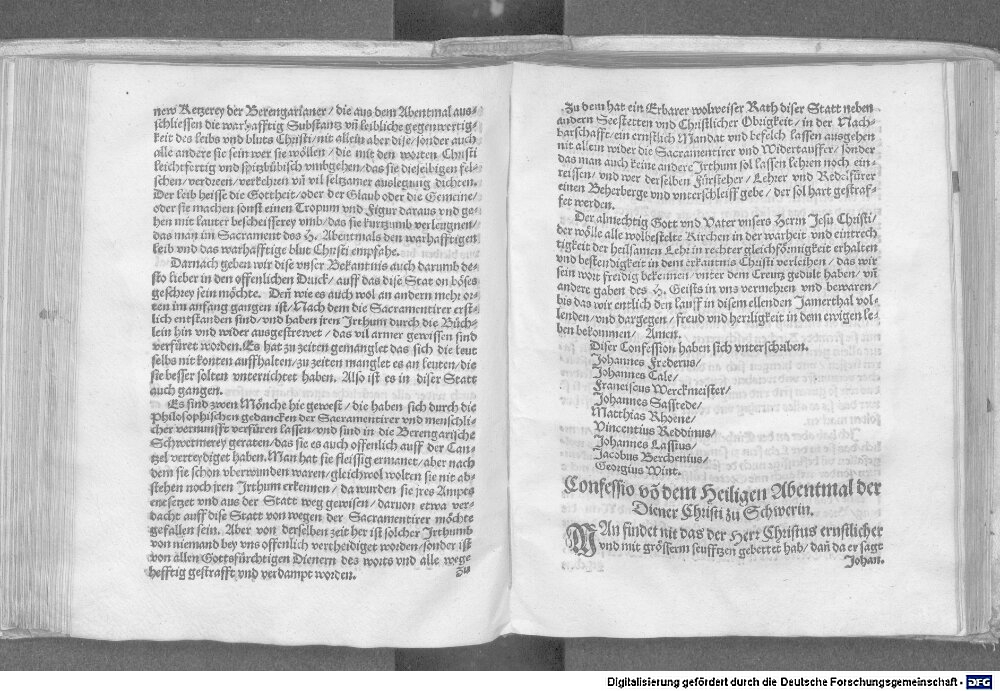 new Ketzerey der Berengarianer / die aus dem Abentmal aus-
schliessen die warhafftig Substantz vn̄ leibliche gegenwertig-
keit des leibs vnd bluts Christi / nit allein aber dise / sonder auch
alle andere sie sein wer sie wöllen / die mit den worten Christi
leichtfertig vnd spitzbübisch vmbgehen / das sie dieselbigen fel-
schen / verdreen / verkehren vn̄ vil seltzamer auslegung dichten.
Der leib heisse die Gottheit / oder der Glaub oder die Gemeine /
oder sie machen sonst einen Tropum vnd Figur daraus vnd ge-
hen mit lauter bescheisserey vmb / das sie kurtzumb verleugnen /
das man im Sacrament des H. Abentmals den warhafftigen
leib vnd das warhafftige blut Christi empfahe.
Darnach geben wir dise vnser Bekantnis auch darumb de-
sto lieber in den offenlichen Druck / auff das dise Stat on böses
geschrey sein möchte. Den̄ wie es auch wol an andern mehr or-
ten im anfang gangen ist / Nach dem die Sacramentirer erst-
lich entstanden sind / vnd haben jren Irthum durch die Büch-
lein hin vnd wider ausgestrewet / das vil armer gewissen sind
verfüret worden. Es hat zu zeiten gemanglet das sich die leut
selbs nit konten auffhalten / zu zeiten manglet es an leuten / die
sie besser solten vnterrichtet haben. Also ist es in diser Statt
auch gangen.
Es sind zwen Mönche hie gewest / die haben sich durch die
Philosophischen gedancken der Sacramentirer vnd menschli-
cher vernunfft verfüren lassen / vnd sind in die Berengarische
Schwermerey geraten / das sie es auch offenlich auff der Can-
tzel verteydiget haben. Man hat sie fleissig ermanet / aber nach
dem sie schon vberwunden waren / gleichwol wolten sie nit ab-
stehen noch jren Irthum erkennen / da wurden sie jres Ampts
entsetzet vnd aus der Statt weg gewisen / daruon etwa ver-
dacht auff dise Statt von wegen der Sacramentirer möchte
gefallen sein. Aber von derselben zeit her ist solcher Irthumb
von niemand bey vns offenlich vertheidiget worden / sonder ist
von allen Gottsfürchtigen Dienern des worts vnd alle wege
hefftig gestrafft vnd verdampt worden.
Zu
Zu dem hat ein Erbarer wolweiser Rath diser Statt neben
andern Seestetten vnd Christlicher Obrigkeit / in der Nach-
barschafft / ein ernstlich Mandat vnd befelch lassen ausgehen
nit allein wider die Sacramentirer vnd Widertauffer / sonder
das man auch keine andere Irthum sol lassen lehren noch ein-
reissen / vnd wer derselben Fürsteher / Lehrer vnd Redelfürer
einen Beherberge vnd vnterschleiff gebe / der sol hart gestraf-
fet werden.
Der almechtig Gott vnd Vater vnsers Herrn Jesu Christi /
der wölle alle wolbestelte Kirchen in der warheit vnd eintrech
tigkeit der heilsamen Lehr in rechter gleichförmigkeit erhalten
vnd bestendigkeit in dem erkantnis Christi verleihen / das wir
sein wort freidig bekennen / vnter dem Creutz gedult haben / vn̄
andere gaben des H. Geists in vns vermehren vnd bewaren /
bis das wir entlich den lauff in disem ellenden Jamerthal vol-
lenden / vnd dargegen / freud vnd herrligkeit in dem ewigen le-
ben bekommen / Amen.
Diser Confession haben sich vnterschriben.
Johannes Frederus /
Johannes Tale /
Franciscus Werckmeister /
Johannes Sastrede /
Matthias Rhoene /
Vincentius Reddinus /
Johannes Lassius /
Jacobus Berchenius /
Georgius Wint.
Confessio vō dem Heiligen Abentmal der
Diener Christi zu Schwerin.
MAn findet nit das der Herr Christus ernstlicher
vnd mit grösserm seufftzen gebettet hab / dan̄ da er sagt
Johan.
Digitalisierung gefördert durch die Deutsche Forschungsgemeinschaft - DFG